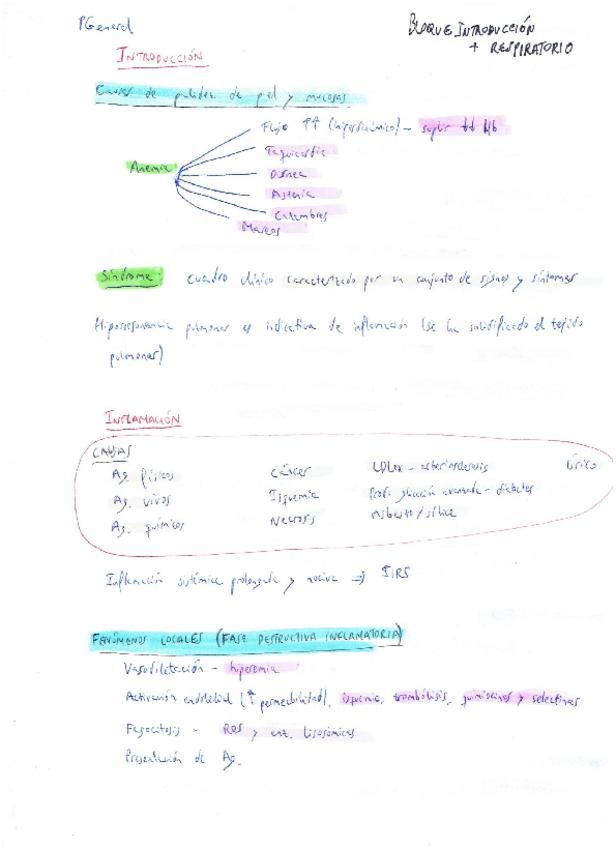 PGeneral
BLOQUE INTRODUCCIÓN
+ RESPIRATORIO
INTRODUCCIÓN
Causas de palidez de piel y mucosas
Anemia
Flujo ↑↑ (hiperdinámico) - suplir Hb
Taquicardia
Disnea
Astenia
Calambres
Mareos
Síndrome: cuadro clínico caracterizado por un conjunto de signos y síntomas
Hiporresonancia pulmonar es indicativa de inflamación (se ha solidificado el tejido
pulmonar)
INFLAMACIÓN
CAUSAS
Ag. físicos Cáncer LDLox - arteriosclerosis Úrico
Ag. vivos Isquemia Prod. glicación avanzada - diabetes
Ag. químicos Necrosis Asbesto / sílice
Inflamación sistémica prolongada y nociva => SIRS
FENÓMENOS LOCALES (FASE DESTRUCTIVA INFLAMATORIA)
Vasodilatación - hiperemia
Activación endotelial (↑ permeabilidad), isquemia, trombólisis, quimiocinas y selectinas
Fagocitosis - ROS y enz. lisosómicas
Presentación de Ag.